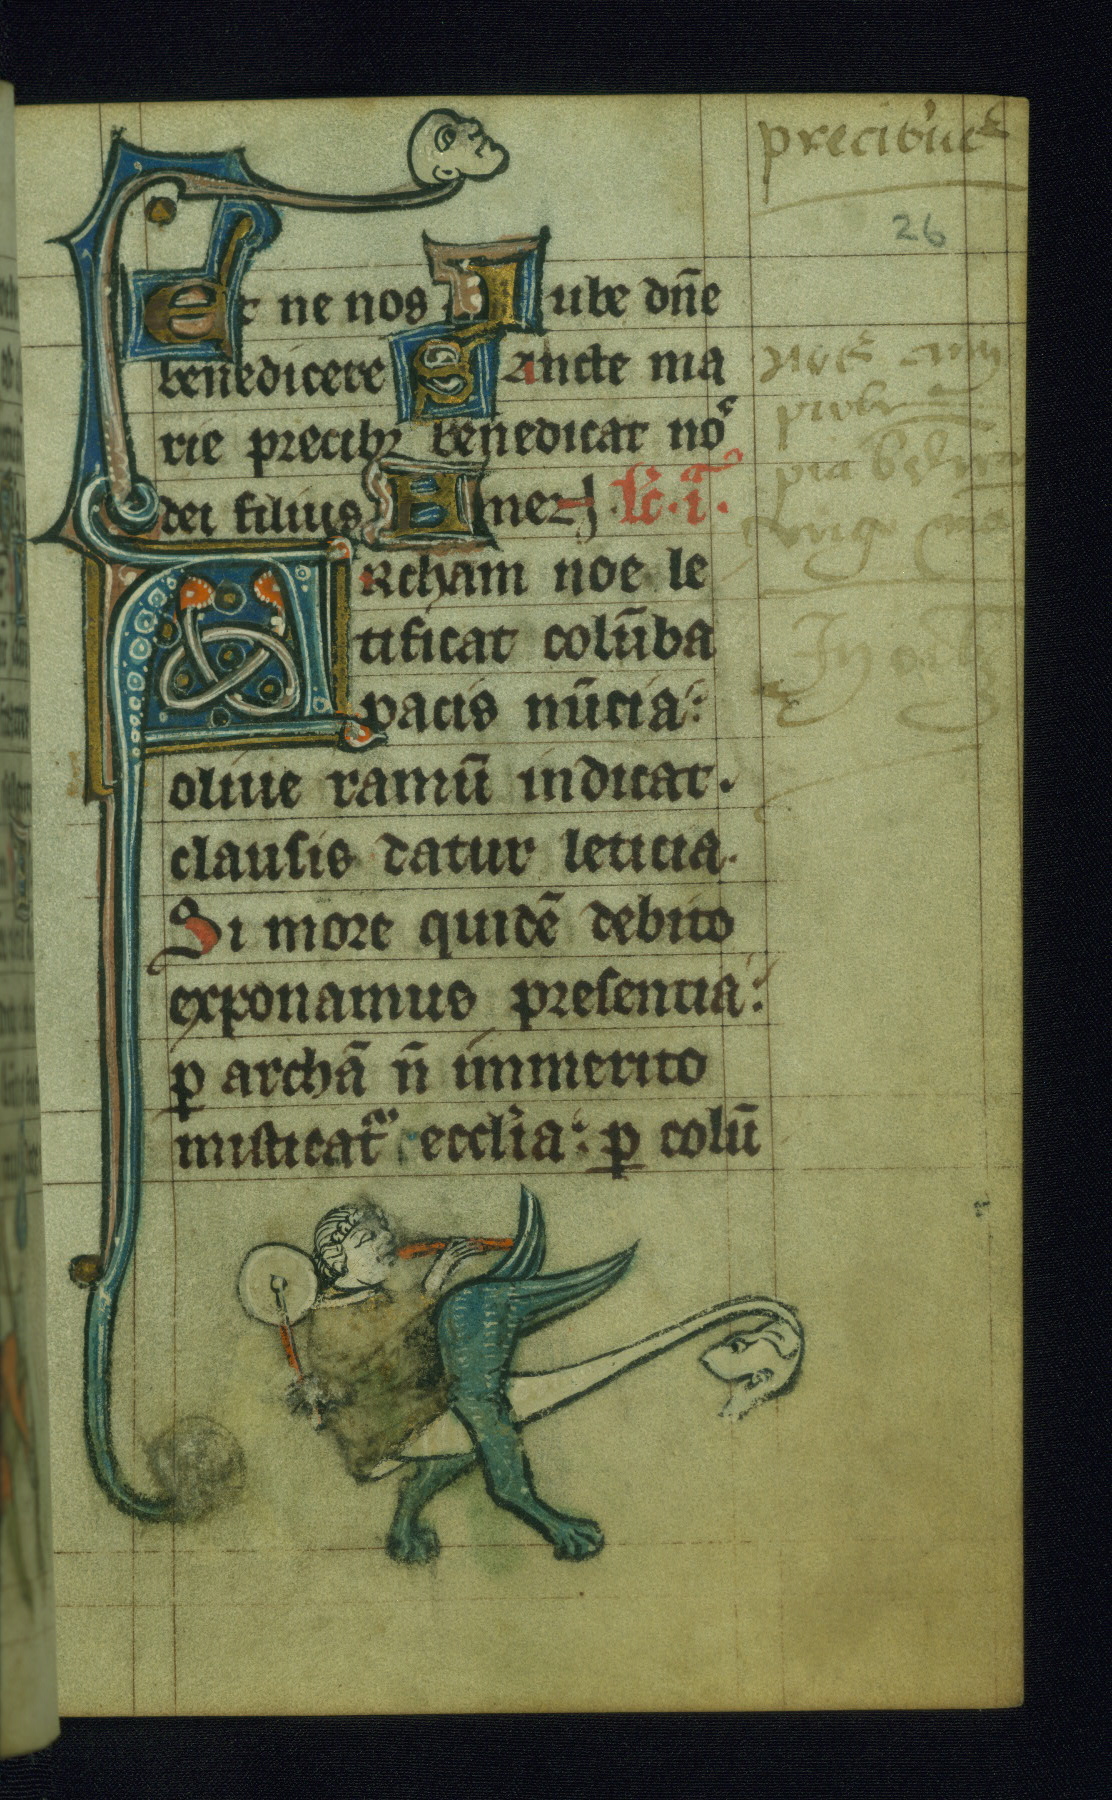 precibus
26
Et ne nos Iube dn̄e
benedicere Sancte ma
rie precibꝫ benedicat nos
dei filius Amen lc̄.i.ᵃ
Archam noe le
tificat colūba
pacis nūcia:
oliue ramū indicat.
clausis datur leticia.
Si more quidē debito
exponamus presentia:
ꝑ archā n̄ immerito
misticatᵃ eccl'ia: ꝑ colū
nos cum